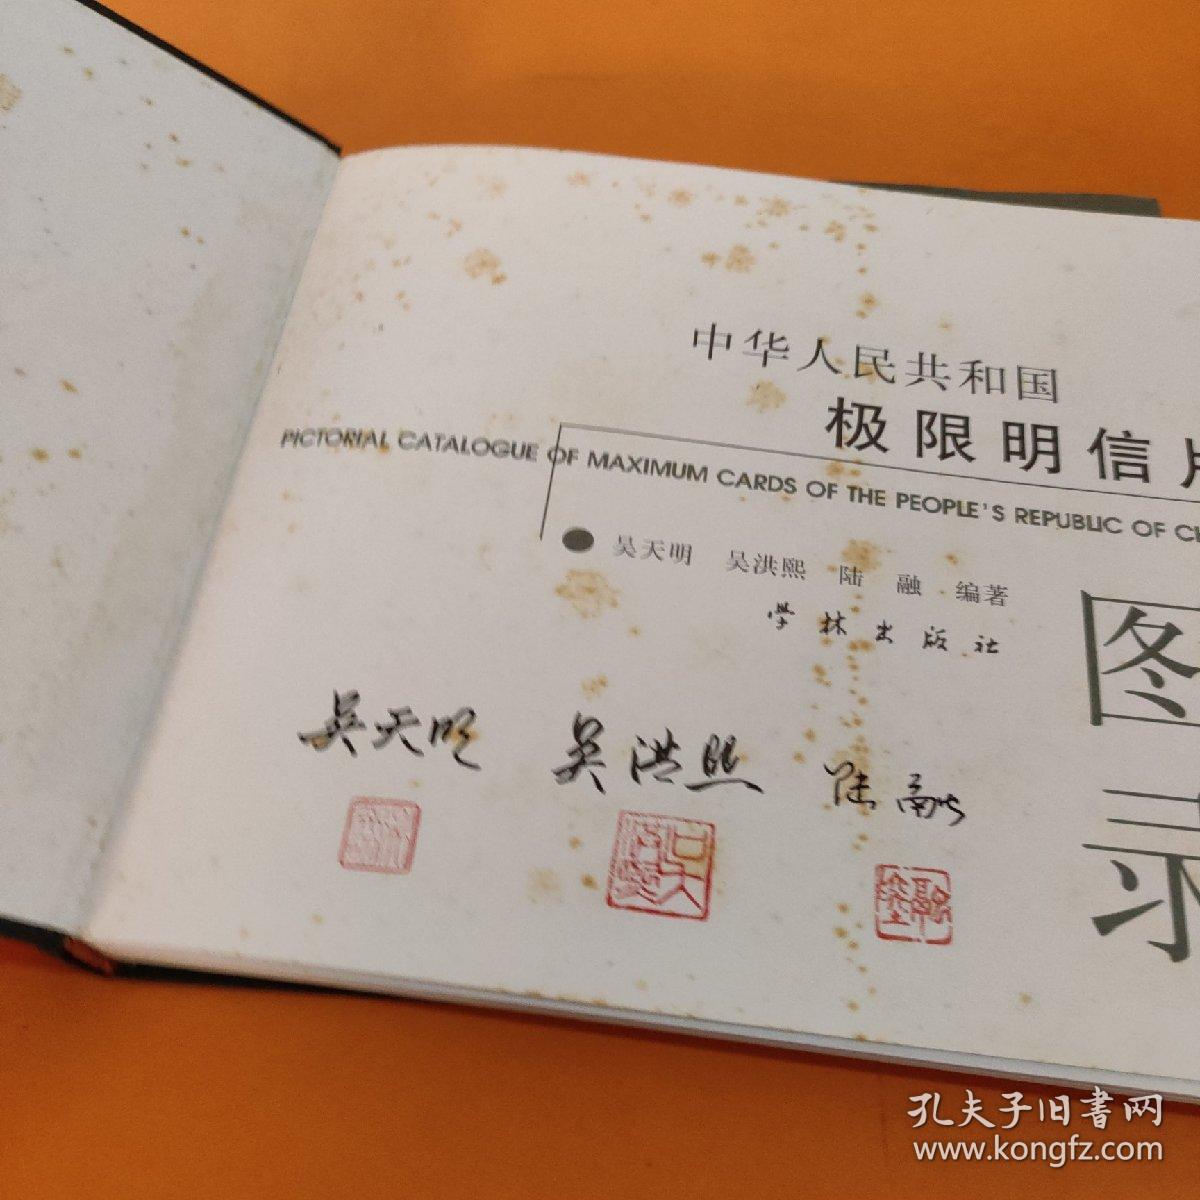 中华人民共和国
极限明信片
PICTORIAL CATALOGUE OF MAXIMUM CARDS OF THE PEOPLE'S REPUBLIC OF CH
吴天明 吴洪熙 陆 融 编著
学林出版社
图
录
吴天明 吴洪熙 陆融
孔夫子旧书网
www.kongfz.com